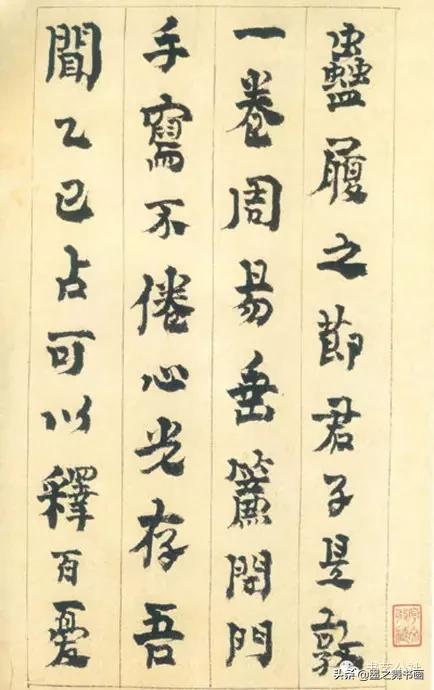 蠱履之節君子是敦
一卷周易垂簾閉門
手寫不倦心光存吾
聞乙巳占可以釋百憂
头条@墨之舞书画